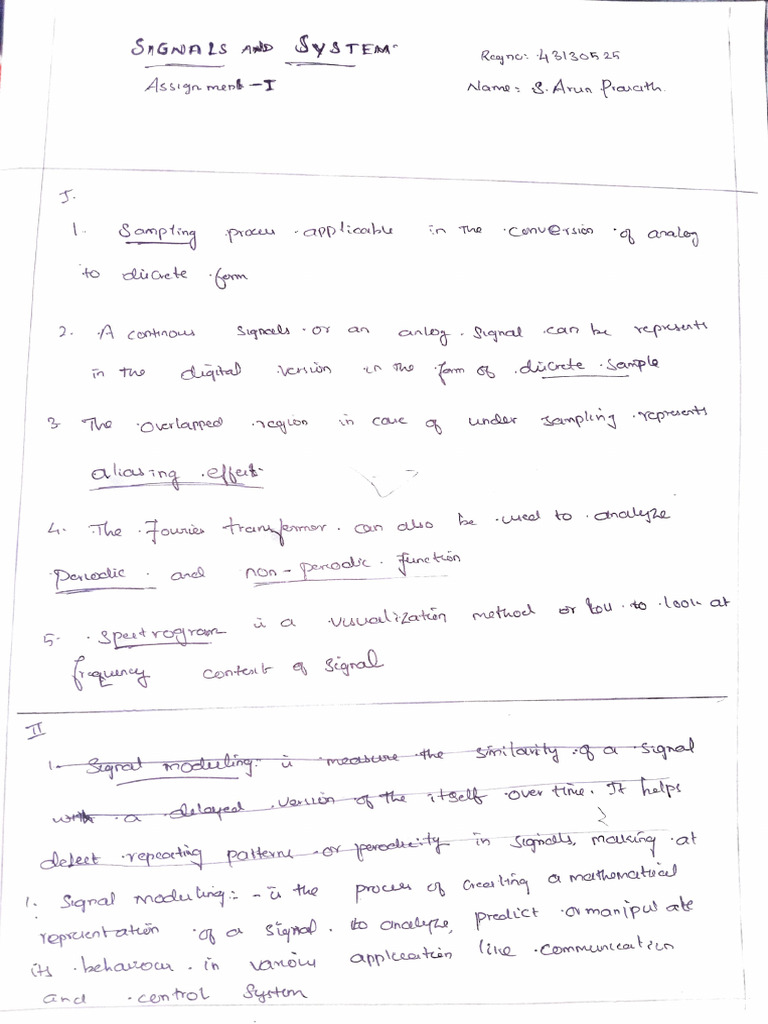 SIGNALS AND SYSTEM
Regno: 43130525
Assignment - I
Name: S. Arun Prasath.
I.
1. Sampling process applicable in the conversion of analog
to discrete form
2. A continous signals or an anlog signal can be represents
in the digital version in the form of discrete sample
3 The overlapped region in case of under sampling represents
aliasing effect
4. The Fourier transformer can also be used to analyze
periodic and non-periodic function
5. Spectrogram is a visualization method or to look at
frequency content of signal
II
1. Signal moduling: is measure the similarity of a signal
with a delayed version of the itself over time. It helps
detect repeating patterns or perodicity in signals, making at
1. Signal moduling:- is the process of creating a mathematical
representation of a signal to analyze, predict or manipulate
its behaviour in various application like communication
and control system